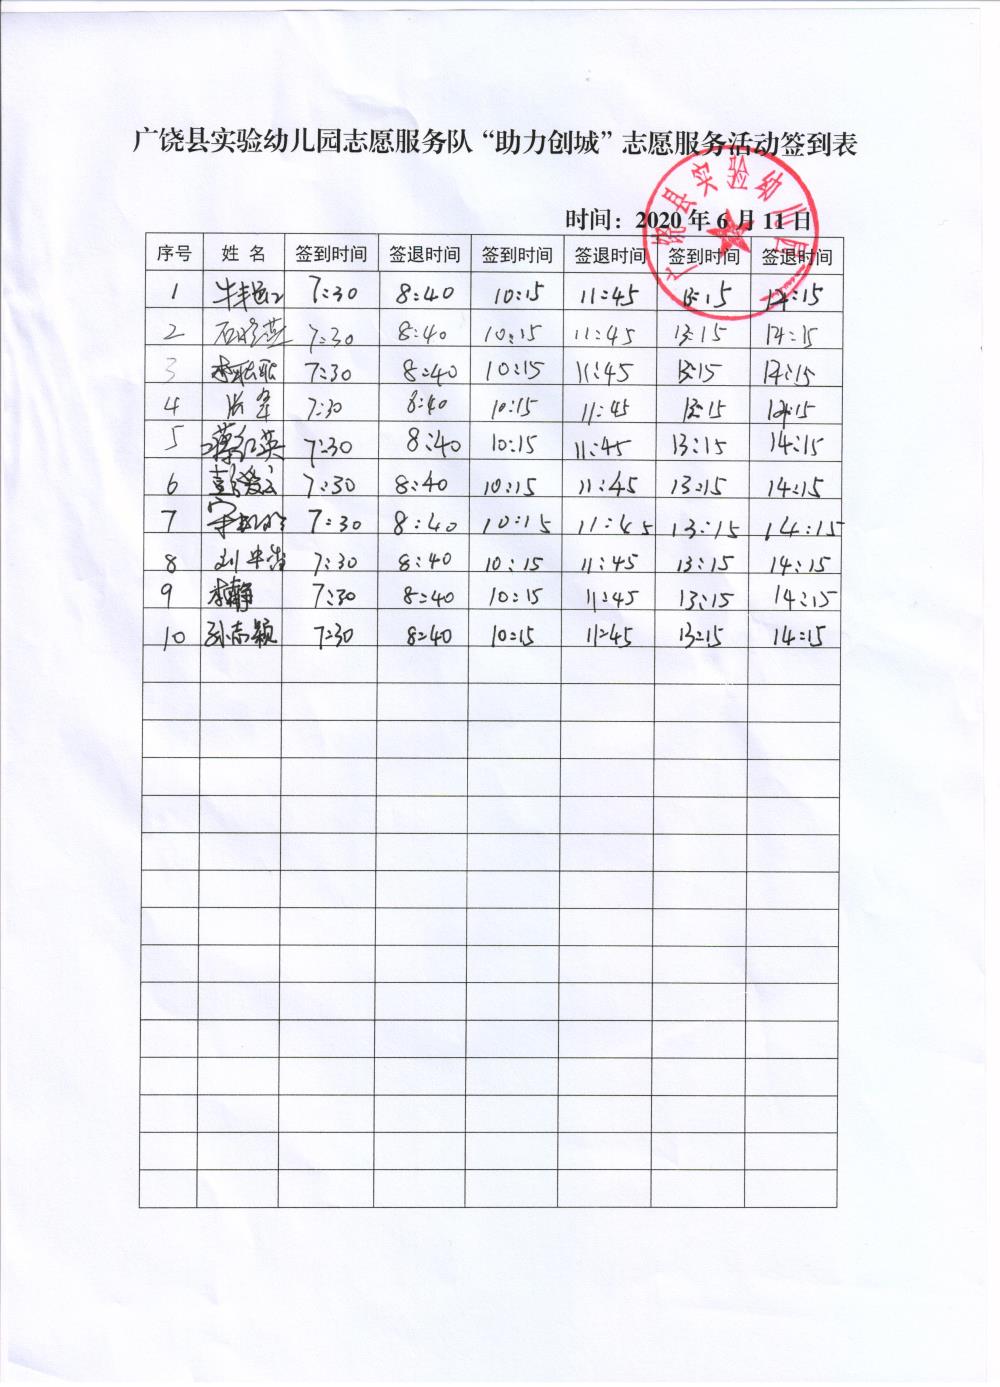 广饶县实验幼儿园志愿服务队“助力创城”志愿服务活动签到表
广饶县实验幼儿园
时间：2020年6月11日
序号 姓名 签到时间 签退时间 签到时间 签退时间 签到时间 签退时间
1 7:30 8:40 10:15 11:45 13:15 14:15
2 7:30 8:40 10:15 11:45 13:15 14:15
3 7:30 8:40 10:15 11:45 13:15 14:15
4 7:30 8:40 10:15 11:45 13:15 14:15
5 蒋红英 7:30 8:40 10:15 11:45 13:15 14:15
6 7:30 8:40 10:15 11:45 13:15 14:15
7 7:30 8:40 10:15 11:45 13:15 14:15
8 7:30 8:40 10:15 11:45 13:15 14:15
9 李静 7:30 8:40 10:15 11:45 13:15 14:15
10 孙志颖 7:30 8:40 10:15 11:45 13:15 14:15